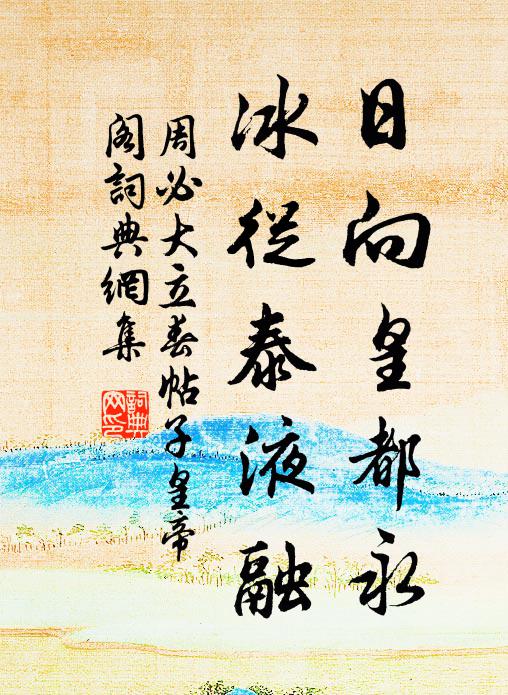 日向皇都永
冰從泰液融
周必大立春帖子皇帝
閣詞典網集
詞典
网印